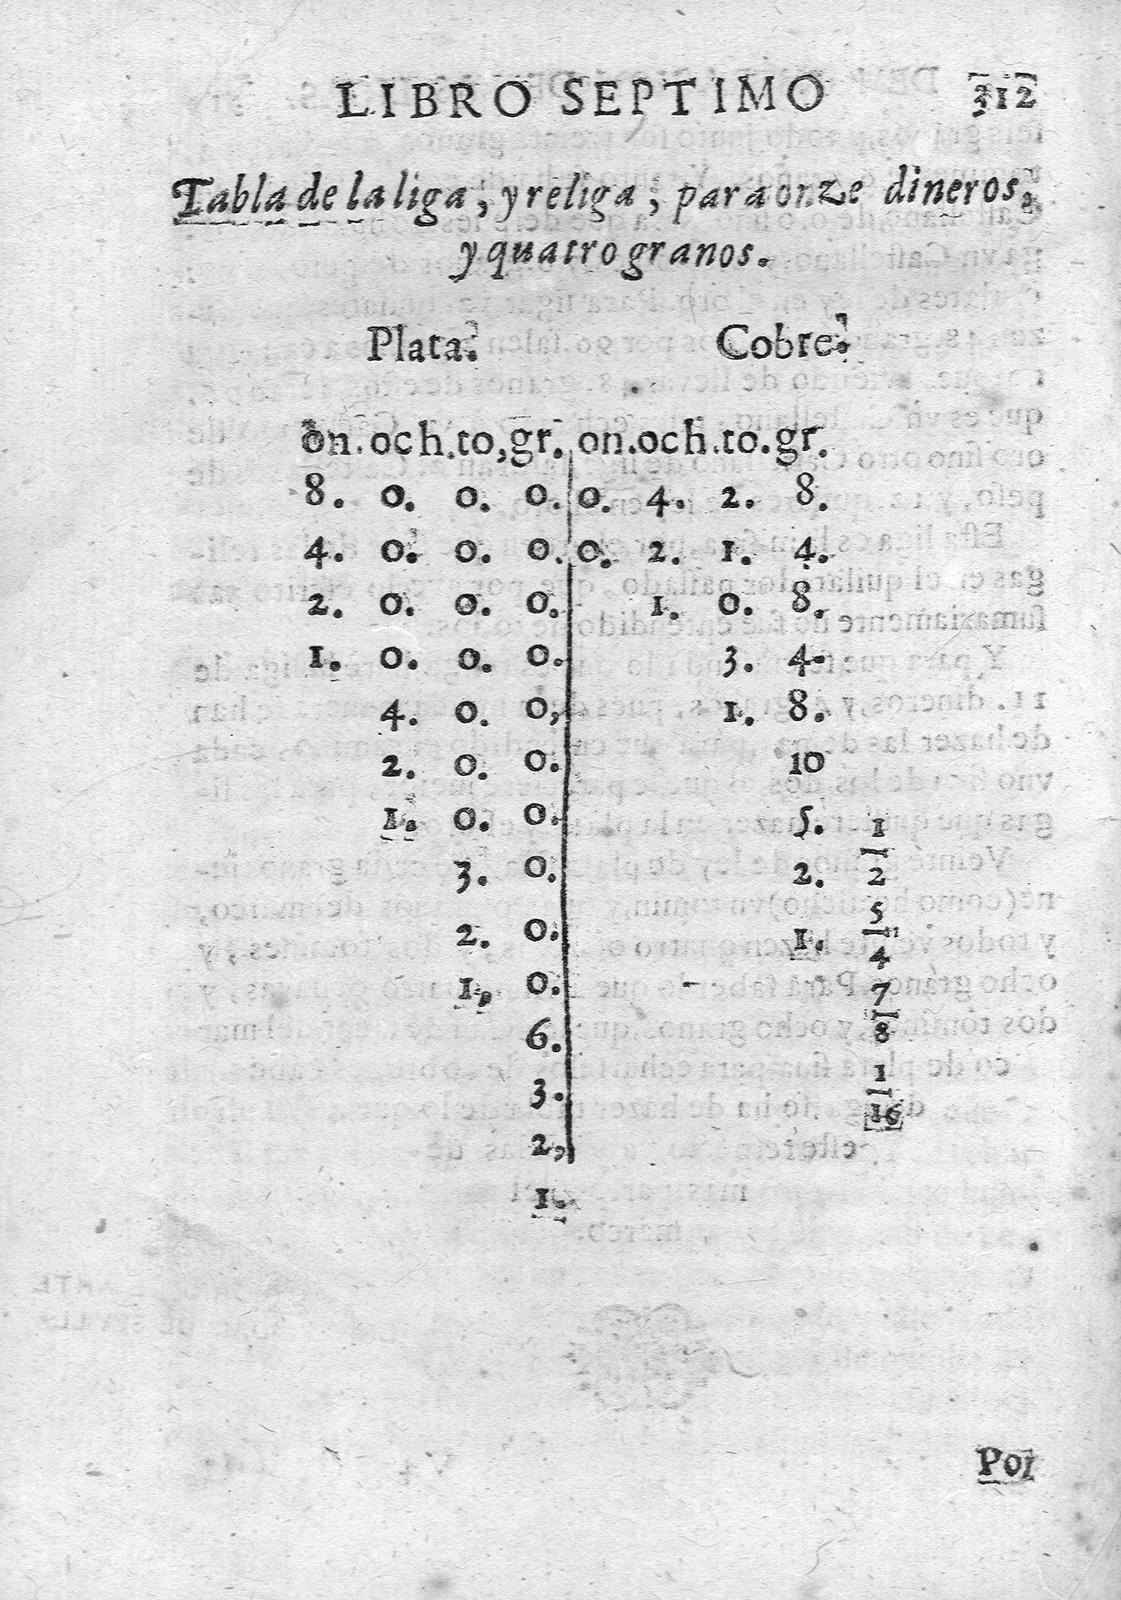 LIBRO SEPTIMO 312
Tabla de la liga, y religa, para onze dineros,
y quatro granos.
Plata. Cobre.
on. och. to, gr. on. och. to. gr.
8. 0. 0. 0. 0. 4. 2. 8.
4. 0. 0. 0. 0. 2. 1. 4.
2. 0. 0. 0. 1. 0. 8.
1. 0. 0. 0. 3. 4.
4. 0. 0, 1. 8.
2. 0. 0. 10
1. 0. 0. 5. 1
3. 0. 2. 2
5
2. 0. 1. 4
1, 0. 7
6. 8
3. 1
16
2,
1.
Por